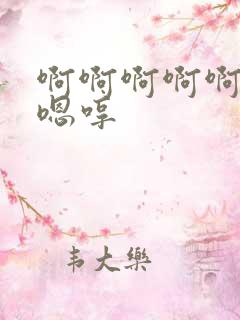 啊啊啊啊啊
嗯哼
韦大樂